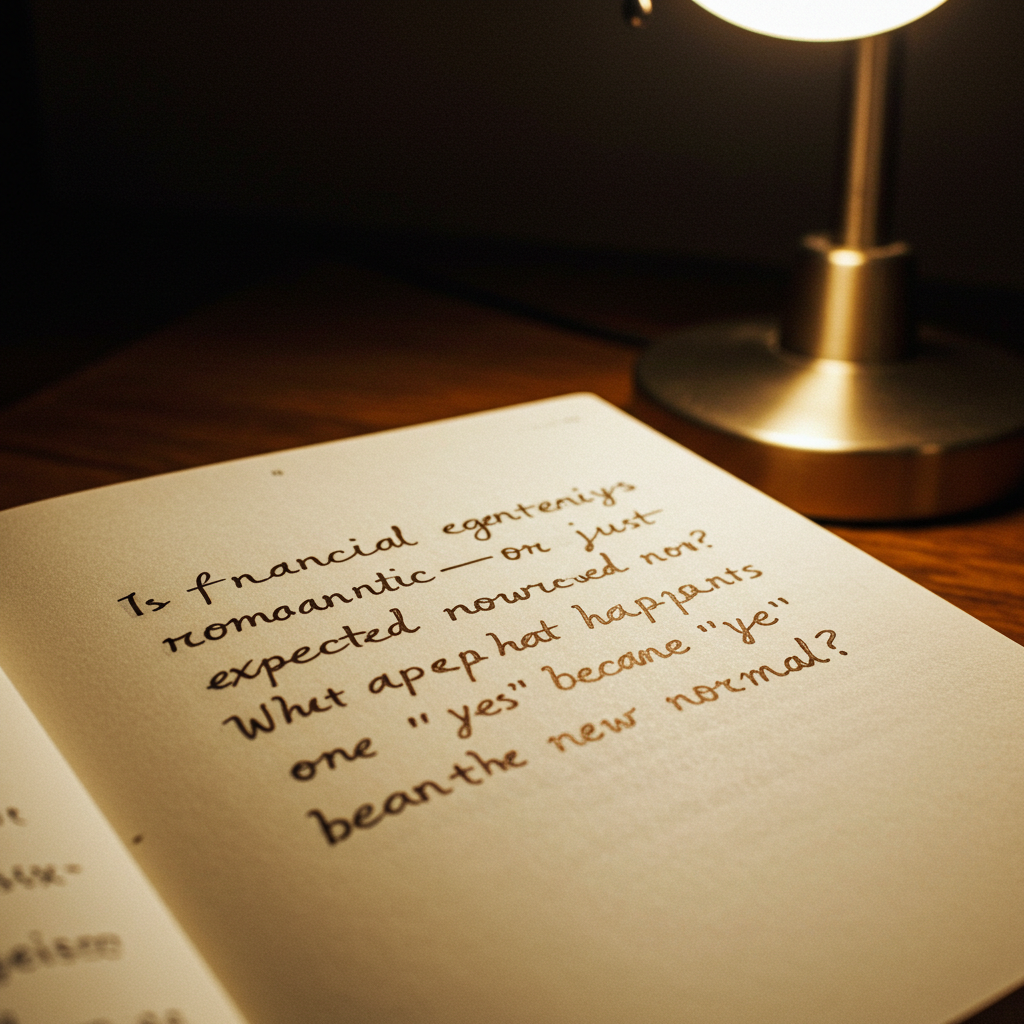 Is fnancial egenteniys
romaanntic — on just
expected nowrcved nov?
What apep hat happants
one " yes" became "ye"
bean the new normal?